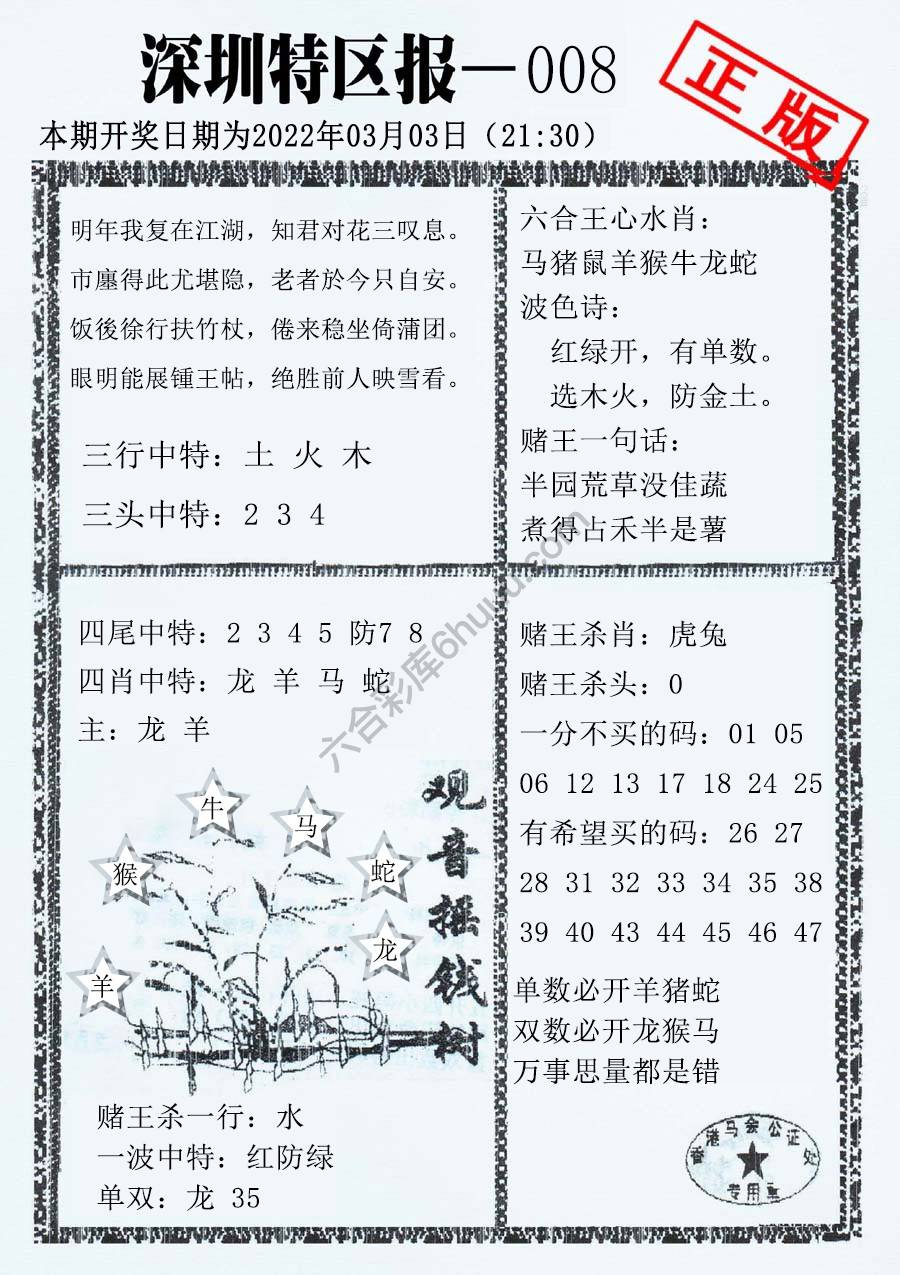 深圳特区报—008
正版
本期开奖日期为2022年03月03日（21:30）
明年我复在江湖，知君对花三叹息。
市廛得此尤堪隐，老者於今只自安。
饭後徐行扶竹杖，倦来稳坐倚蒲团。
眼明能展锺王帖，绝胜前人映雪看。
三行中特：土 火 木
三头中特：2 3 4
六合王心水肖：
马猪鼠羊猴牛龙蛇
波色诗：
红绿开，有单数。
选木火，防金土。
赌王一句话：
半园荒草没佳蔬
煮得占禾半是薯
四尾中特：2 3 4 5 防7 8
四肖中特：龙 羊 马 蛇
主：龙 羊
牛
马
猴
蛇
龙
羊
观音摇钱树
赌王杀一行：水
一波中特：红防绿
单双：龙 35
赌王杀肖：虎兔
赌王杀头：0
一分不买的码：01 05
06 12 13 17 18 24 25
有希望买的码：26 27
28 31 32 33 34 35 38
39 40 43 44 45 46 47
单数必开羊猪蛇
双数必开龙猴马
万事思量都是错
香港马会公证处
专用章
六合彩库6huuu.com